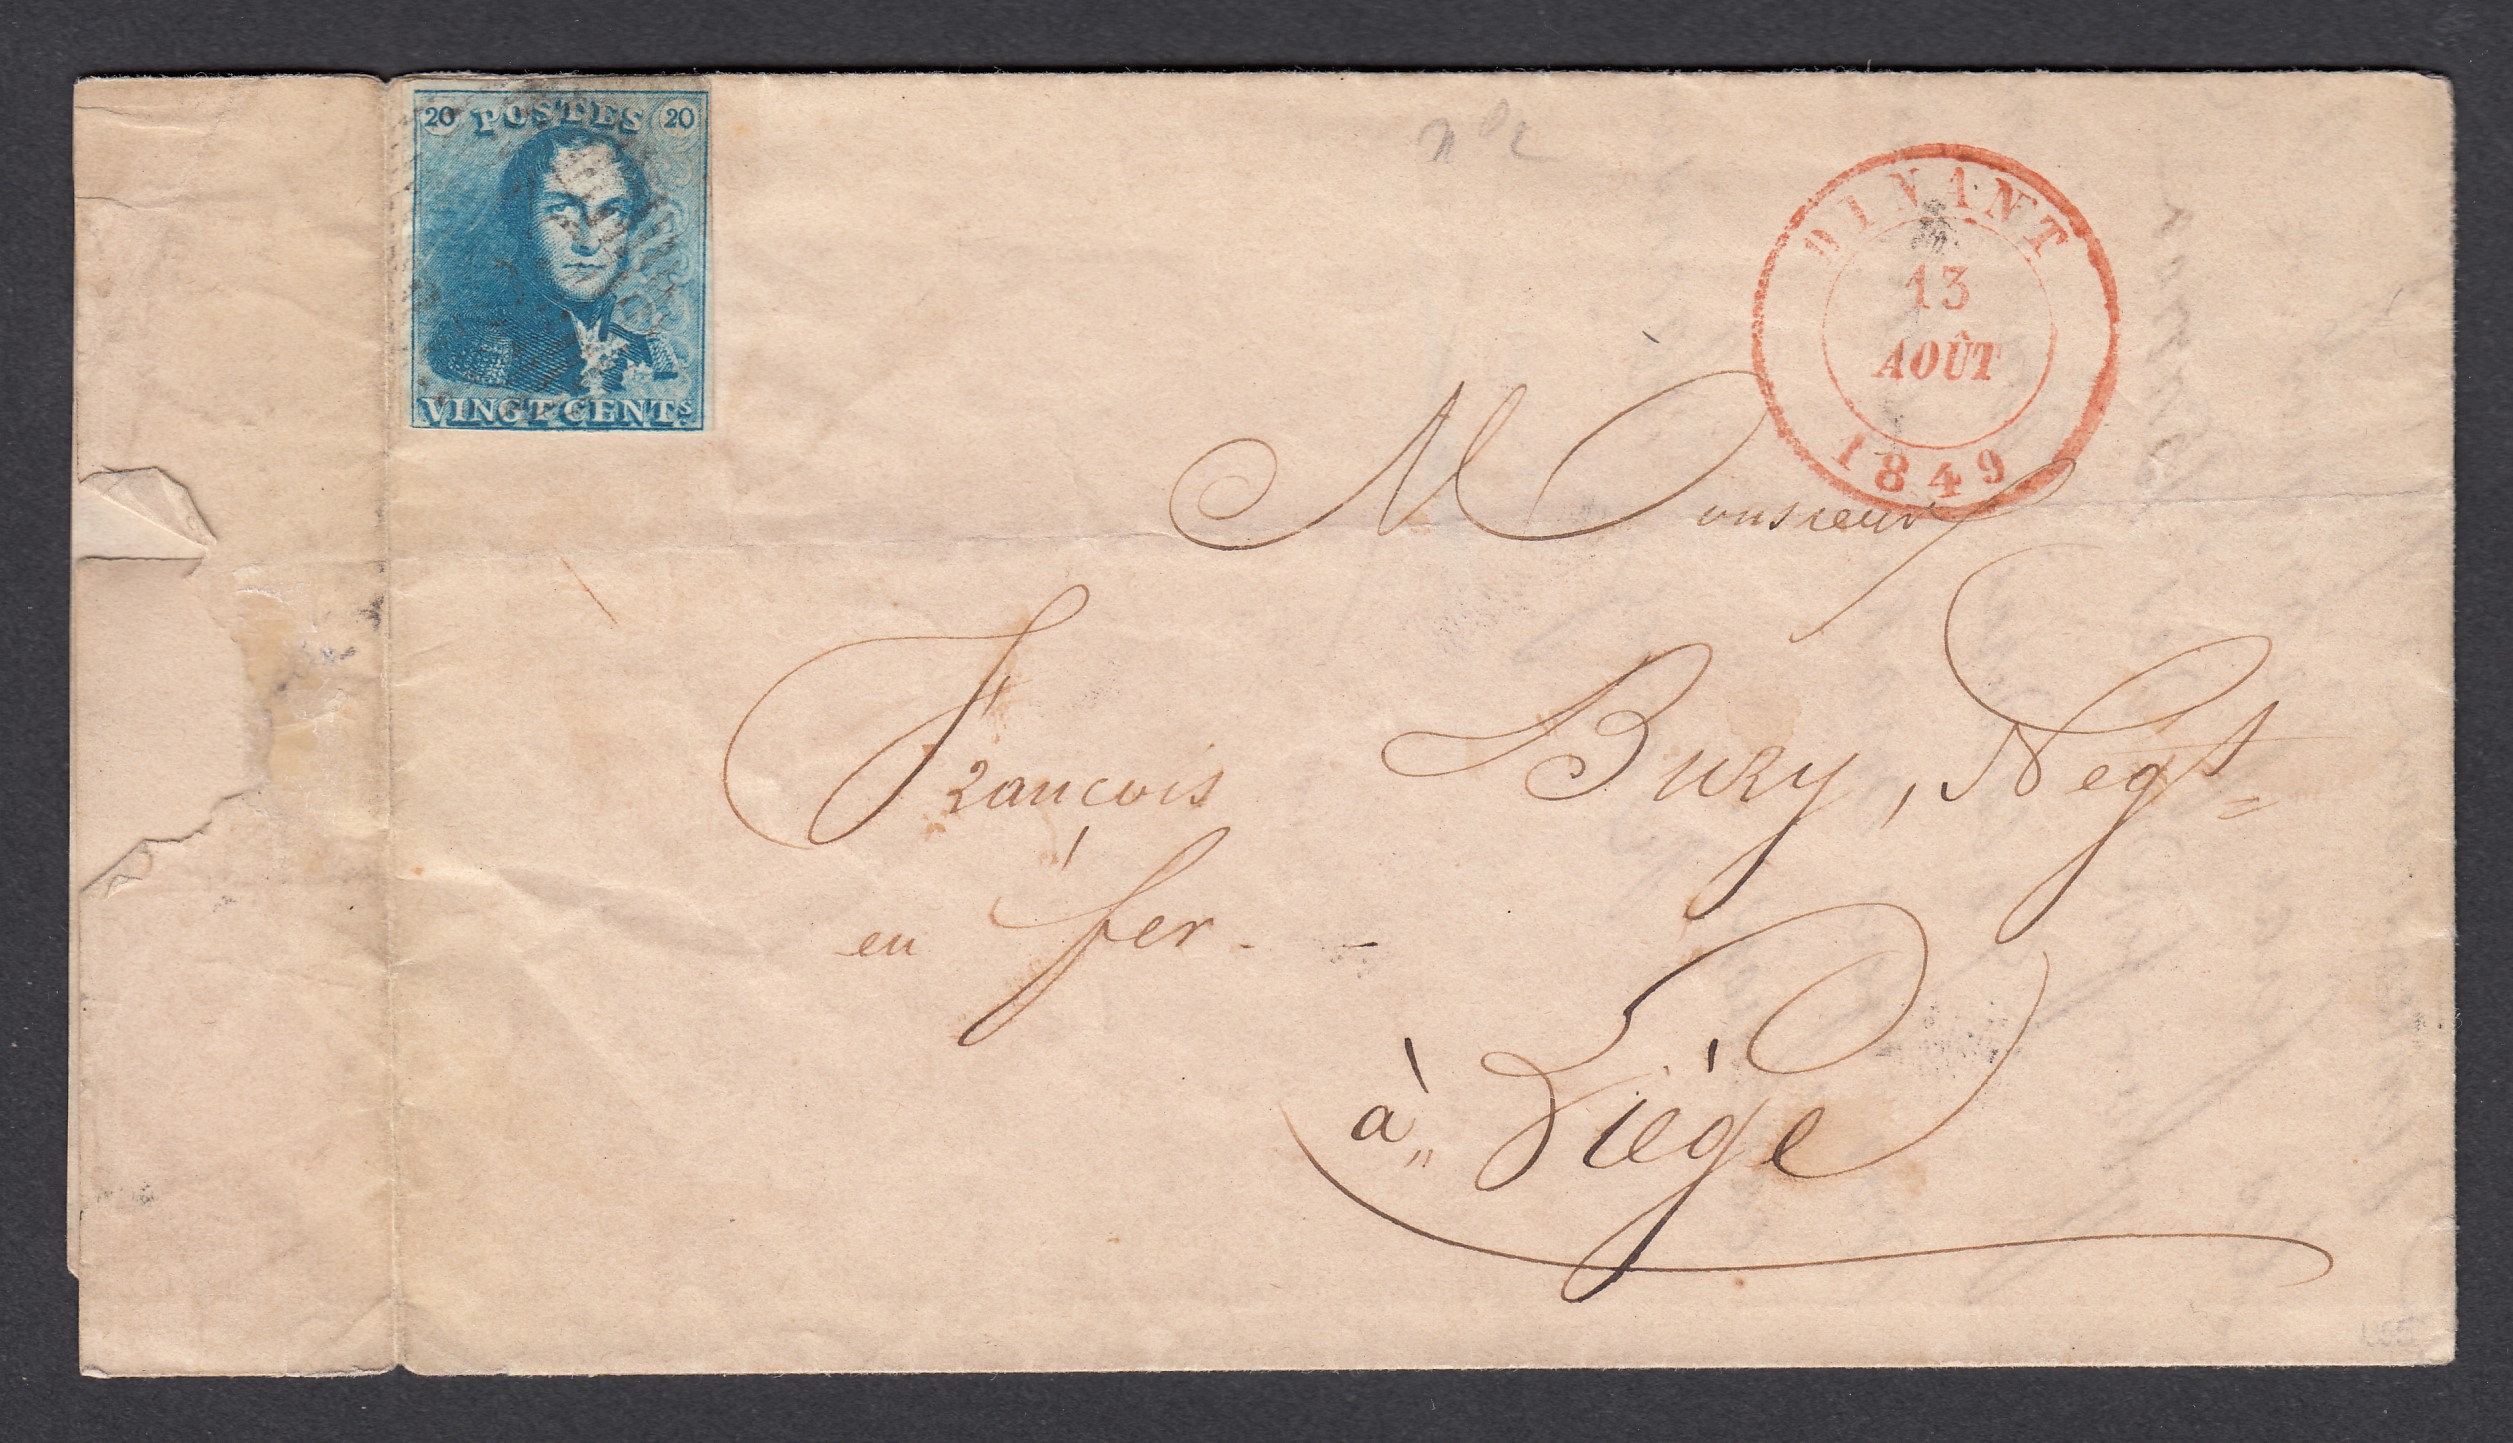 20 POSTES 20
VINGT CENTS
nº 2
DINANT
13
AOÛT
1849
Monsieur
François Bury, Negt
en fer.
à Liége